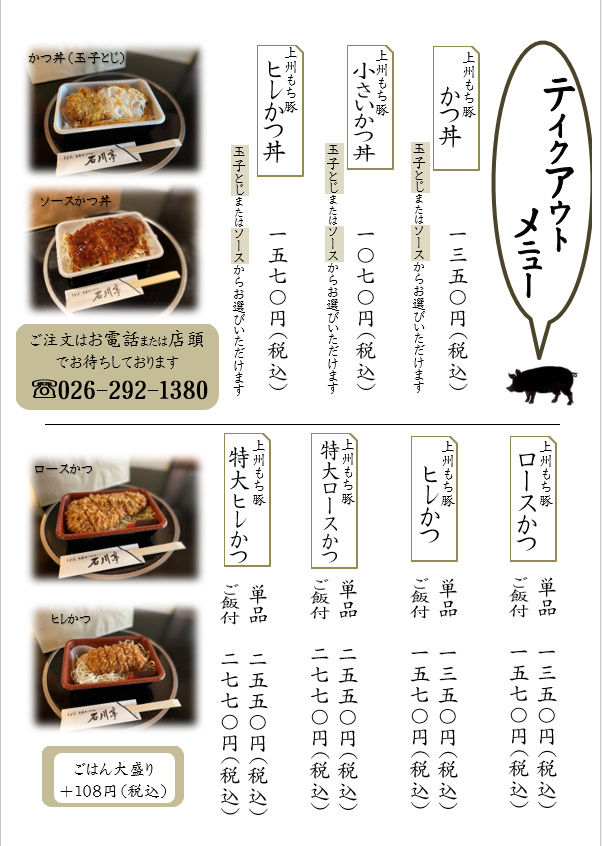 ティクアウト
メニュー
上州もち豚
かつ丼
玉子とじまたはソースからお選びいただけます
一三五〇円(税込)
上州もち豚
小さいかつ丼
玉子とじまたはソースからお選びいただけます
一〇七〇円(税込)
上州もち豚
ヒレかつ丼
玉子とじまたはソースからお選びいただけます
一五七〇円(税込)
かつ丼(玉子とじ)
石川亭
ソースかつ丼
石川亭
ご注文はお電話または店頭
でお待ちしております
☎026-292-1380
上州もち豚
ロースかつ
単品 一三五〇円(税込)
ご飯付 一五七〇円(税込)
上州もち豚
ヒレかつ
単品 一三五〇円(税込)
ご飯付 一五七〇円(税込)
上州もち豚
特大ロースかつ
単品 二五五〇円(税込)
ご飯付 二七七〇円(税込)
上州もち豚
特大ヒレかつ
単品 二五五〇円(税込)
ご飯付 二七七〇円(税込)
ロースかつ
石川亭
ヒレかつ
石川亭
ごはん大盛り
+108円(税込)